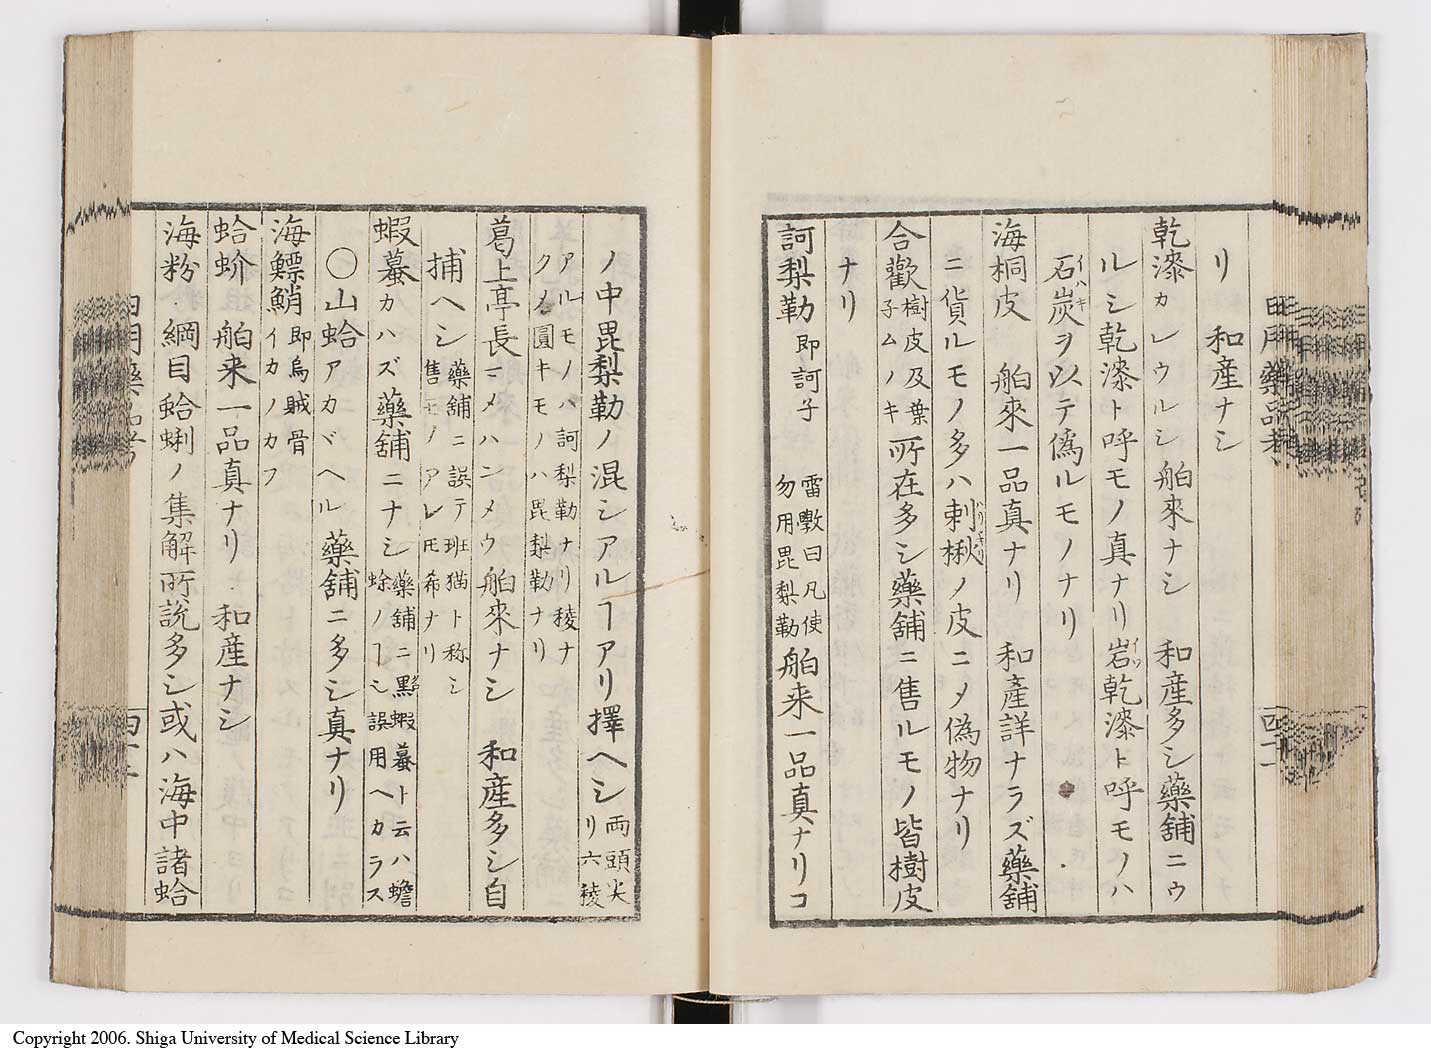 リ 和産ナシ
乾漆カレウルシ舶來ナシ 和産多シ藥舗ニウ
ルシ乾漆ト呼モノ真ナリ岩乾漆ト呼モノハ
石炭ヲ以テ偽ルモノナリ
イハキ
海桐皮 舶來一品真ナリ 和產詳ナラズ藥舗
ニ貨ルモノ多ハ刺楸ノ皮ニメ偽物ナリ
合歡
樹皮及葉
子ムノキ
所在多シ藥舗ニ售ルモノ皆樹皮
ナリ
訶梨勒
即訶子
雷斅曰凡使
勿用毘梨勒
舶来一品真ナリコ
ノ中毘梨勒ノ混シアルヿアリ擇ヘシ
両頭尖
リ六稜
アルモノハ訶梨勒ナリ稜ナ
クメ圓キモノハ毘梨勒ナリ
葛上亭長マメハンメウ舶來ナシ 和産多シ自
捕ヘシ
藥舗ニ誤テ班猫ト称シ
售モノアレ𪜈希ナリ
蝦蟇カハズ藥舗ニナシ
藥舗ニ黑蝦蟇ト云ハ蟾
蜍ノヿシ誤用ヘカラス
〇山蛤アカガヘル藥舗ニ多シ真ナリ
海鰾鮹
即烏賊骨
イカノカフ
蛤蚧 舶来一品真ナリ 和産ナシ
海粉 綱目蛤蜊ノ集解所説多シ或ハ海中諸蛤
日用藥品考
四十一
Copyright 2006. Shiga University of Medical Science Library